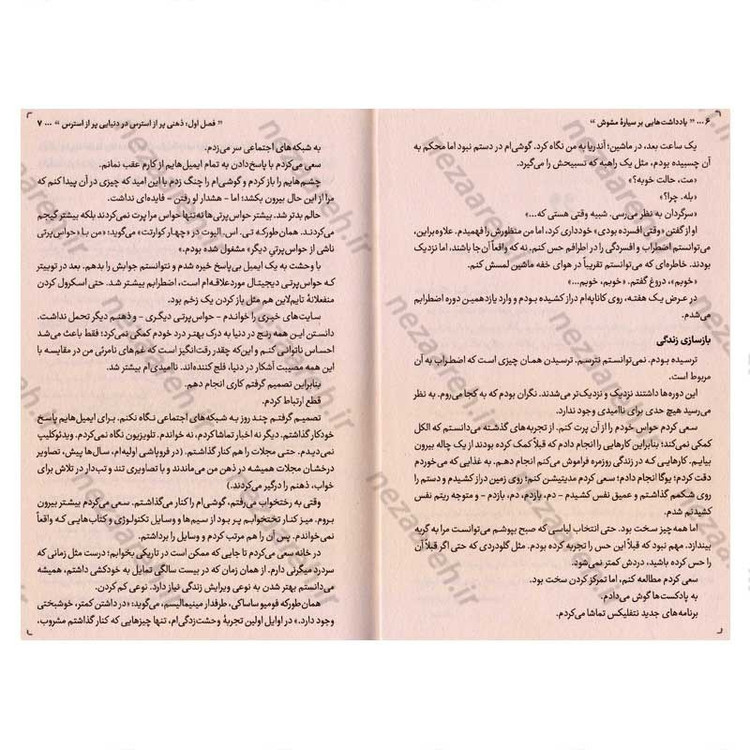 ۶ ... " یادداشت‌هایی بر سیارهٔ مشوش "
یک ساعت بعد، در ماشین؛ آندریا به من نگاه کرد. گوشی‌ام در دستم نبود اما محکم به
آن چسبیده بودم، مثل یک راهبه که تسبیحش را می‌گیرد.
«مت، حالت خوبه؟»
«بله. چرا؟»
«سرگردان به نظر می‌رسی. شبیه وقتی هستی که...»
او از گفتن «وقتی افسرده بودی» خودداری کرد، اما منظورش را فهمیدم. علاوه‌براین،
می‌توانستم اضطراب و افسردگی را در اطرافم حس کنم. نه که واقعاً آن‌جا باشند، اما نزدیک
بودند. خاطره‌ای که می‌توانستم تقریباً در هوای خفه ماشین لمسش کنم.
«خوبم»، دروغ گفتم. «خوبم، خوبم...»
در عرض یک هفته، روی کاناپه‌ام دراز کشیده بودم و وارد یازدهمین دوره اضطرابم
می‌شدم.
بازسازی زندگی
ترسیده بودم. نمی‌توانستم نترسم. ترسیدن همان چیزی است که اضطراب به آن
مربوط است.
این دوره‌ها داشتند نزدیک و نزدیک‌تر می‌شدند. نگران بودم که به کجا می‌روم. به نظر
می‌رسید هیچ حدی برای ناامیدی وجود ندارد.
سعی کردم حواس خودم را از آن پرت کنم. از تجربه‌های گذشته می‌دانستم که الکل
کمکی نمی‌کند؛ بنابراین کارهایی را انجام دادم که قبلاً کمک کرده بودند از یک چاله بیرون
بیایم. کارهایی که در زندگی روزمره فراموش می‌کنم انجام دهم. به غذایی که می‌خوردم
دقت کردم؛ یوگا انجام دادم؛ سعی کردم مدیتیشن کنم؛ روی زمین دراز کشیدم و دستم را
روی شکمم گذاشتم و عمیق نفس کشیدم – دم، بازدم، دم، بازدم – و متوجه ریتم نفس
کشیدنم شدم.
اما همه‌چیز سخت بود. حتی انتخاب لباسی که صبح بپوشم می‌توانست مرا به گریه
بیندازد. مهم نبود که قبلاً این حس را تجربه کرده بودم. مثل گلودردی که حتی اگر قبلاً آن
را حس کرده باشید، دردش کمتر نمی‌شود.
سعی کردم مطالعه کنم، اما تمرکز کردن سخت بود.
به پادکست‌ها گوش می‌دادم.
برنامه‌های جدید نتفلیکس تماشا می‌کردم.
" فصل اول؛ ذهنی پر از استرس در دنیایی پر از استرس " ... ۷
به شبکه‌های اجتماعی سر می‌زدم.
سعی می‌کردم با پاسخ‌دادن به تمام ایمیل‌هایم از کارم عقب نمانم.
چشم‌هایم را باز کردم و گوشی‌ام را چنگ زدم با این امید که چیزی در آن پیدا کنم که
مرا از این حال بیرون بکشد؛ اما – هشدار لو رفتن – فایده‌ای نداشت.
حالم بدتر شد. بیشتر حواس‌پرتی‌ها نه تنها حواس مرا پرت نمی‌کردند بلکه بیشتر گیجم
می‌کردند. همان‌طورکه تی. اس. الیوت در «چهار کوارتت» می‌گوید؛ «من با «حواس‌پرتی
ناشی از حواس‌پرتیِ دیگر» مشغول شده بودم.»
با وحشت به یک ایمیل بی‌پاسخ خیره شدم و نتوانستم جوابش را بدهم. بعد در توییتر
که حواس‌پرتی دیجیتال موردعلاقه‌ام است، اضطرابم بیشتر شد. حتی اسکرول کردن
منفعلانهٔ تایم‌لاین هم مثل باز کردن یک زخم بود.
سایت‌های خبری را خواندم – حواس‌پرتی دیگری – و ذهنم دیگر تحمل نداشت.
دانستن این‌همه رنج در دنیا به درک بهتر درد خودم کمکی نمی‌کرد؛ فقط باعث می‌شد
احساس ناتوانی کنم و این‌که چقدر رقت‌انگیز است که غم‌های نامرئی من در مقایسه با
این همه مصیبت آشکار در دنیا، فلج کننده‌اند. ناامیدی‌ام بیشتر شد.
بنابراین تصمیم گرفتم کاری انجام دهم.
قطع ارتباط کردم.
تصمیم گرفتم چند روز به شبکه‌های اجتماعی نگاه نکنم. برای ایمیل‌هایم پاسخ
خودکار گذاشتم. دیگر نه اخبار تماشا کردم، نه خواندم. تلویزیون نگاه نمی‌کردم. ویدئوکلیپ
نمی‌دیدم. حتی مجلات را هم کنار گذاشتم. (در فروپاشی اولیه‌ام، سال‌ها پیش، تصاویر
درخشان مجلات همیشه در ذهن من می‌ماندند و با تصاویری تند و تب‌دار در تلاش برای
خواب، ذهنم را درگیر می‌کردند.)
وقتی به رختخواب می‌رفتم، گوشی‌ام را کنار می‌گذاشتم. سعی کردم بیشتر بیرون
بروم. میز کنار تختخوابم پر بود از سیم‌ها و وسایل تکنولوژی و کتاب‌هایی که واقعاً
نمی‌خواندم. پس آن را هم مرتب کردم و وسایل را برداشتم.
در خانه سعی می‌کردم تا جایی که ممکن است در تاریکی بخوابم؛ درست مثل زمانی که
سردرد میگرنی دارم. از همان زمان که در بیست سالگی تمایل به خودکشی داشتم، همیشه
می‌دانستم بهتر شدن به نوعی ویرایش زندگی نیاز دارد. نوعی کم کردن.
همان‌طورکه فومیو ساساکی، طرفدار مینیمالیسم، می‌گوید؛ «در داشتن کمتر، خوشبختی
وجود دارد.» در اوایل اولین تجربهٔ وحشت‌زدگی‌ام، تنها چیزهایی که کنار گذاشتم مشروب،
nezaareh.ir